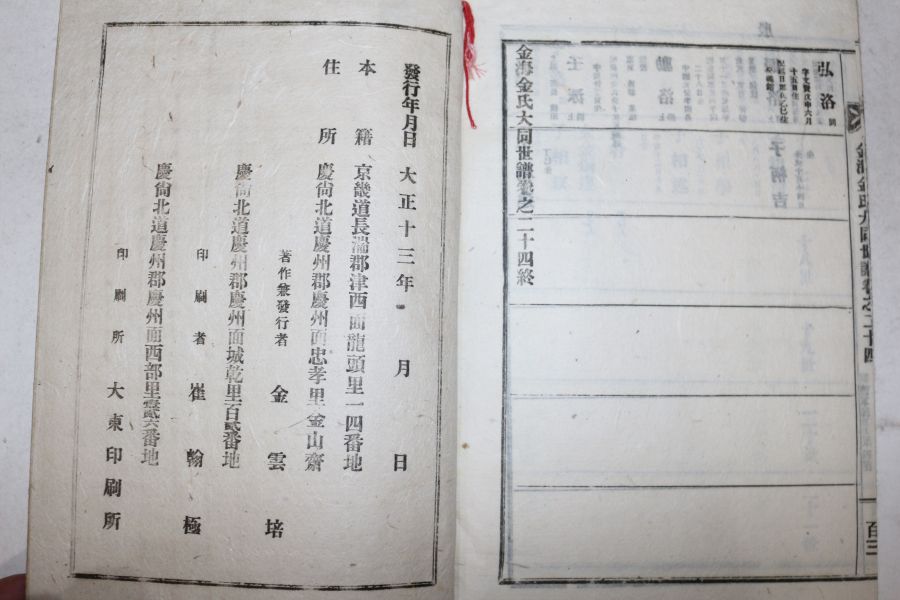 弘洛
子炳吉
金海金氏大同世譜卷之二十四
百三
金海金氏大同世譜卷之二十四終
發行年月日 大正十三年 月 日
本籍 京畿道長湍郡津西面龍頭里一四番地
住所 慶尙北道慶州郡慶州面忠孝里金山齋
著作兼發行者 金雲培
慶尙北道慶州郡慶州面城乾里一百貳番地
印刷者 崔翰極
慶尙北道慶州郡慶州面西部里壹貳六番地
印刷所 大東印刷所